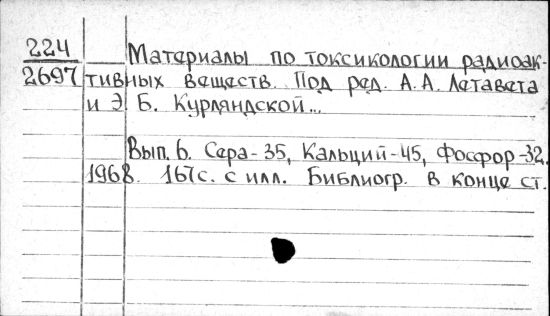 224 Материалы по токсикологии радиоак-
2697 тивных веществ. Под ред. А. А. Летавета
и Э. Б. Курляндской...
Вып. 6. Сера-35, Кальций-45, Фосфор-32.
1968. 167с. с илл. Библиогр. в конце ст.